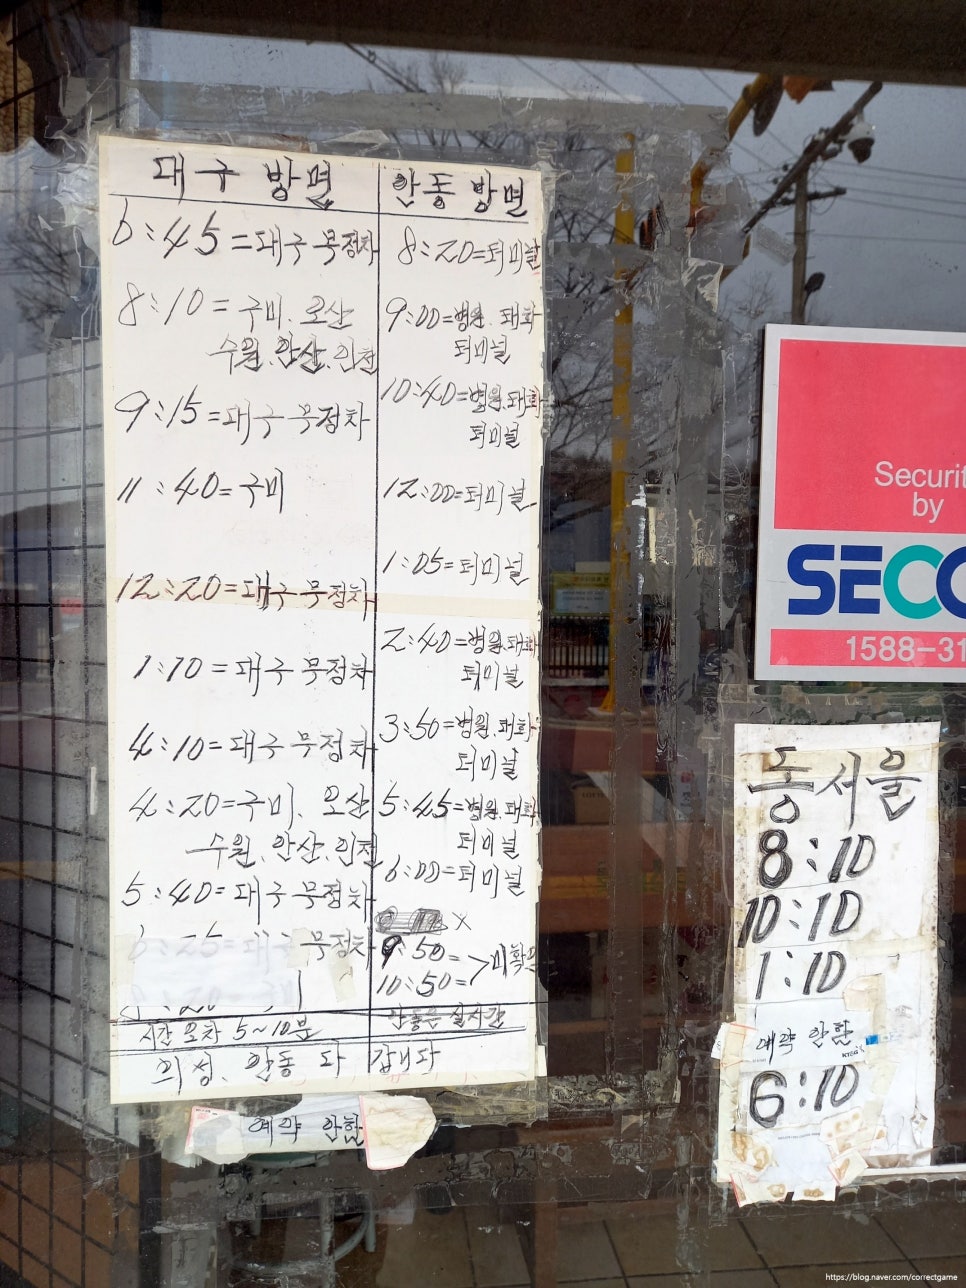 대구 방면
6:45=대구 무정차
8:10= 구미. 오산
수원.안산.인천
9:15=대구 무정차
11:40=구미
12:20=대구 무정차
1:10=대구 무정차
4:10=대구 무정차
4:20=구미. 오산
수원.안산.인천
5:40=대구 무정차
무정차
시간 오차 5~10분
안동 방면
8:20=터미널
9:00=병원.태화
터미널
10:40=병원.태화
터미널
12:00=터미널
1:05=터미널
2:40=병원.태화
터미널
3:50=병원.태화
터미널
5:45=병원.태화
터미널
6:00=터미널
X
9:50=
10:50=>미확인
의성. 안동 다 갑니다
예약 안함
Securit
by
SECO
1588-31
동서울
8:10
10:10
1:10
예약 안함
6:10
https://blog.naver.com/correctgame